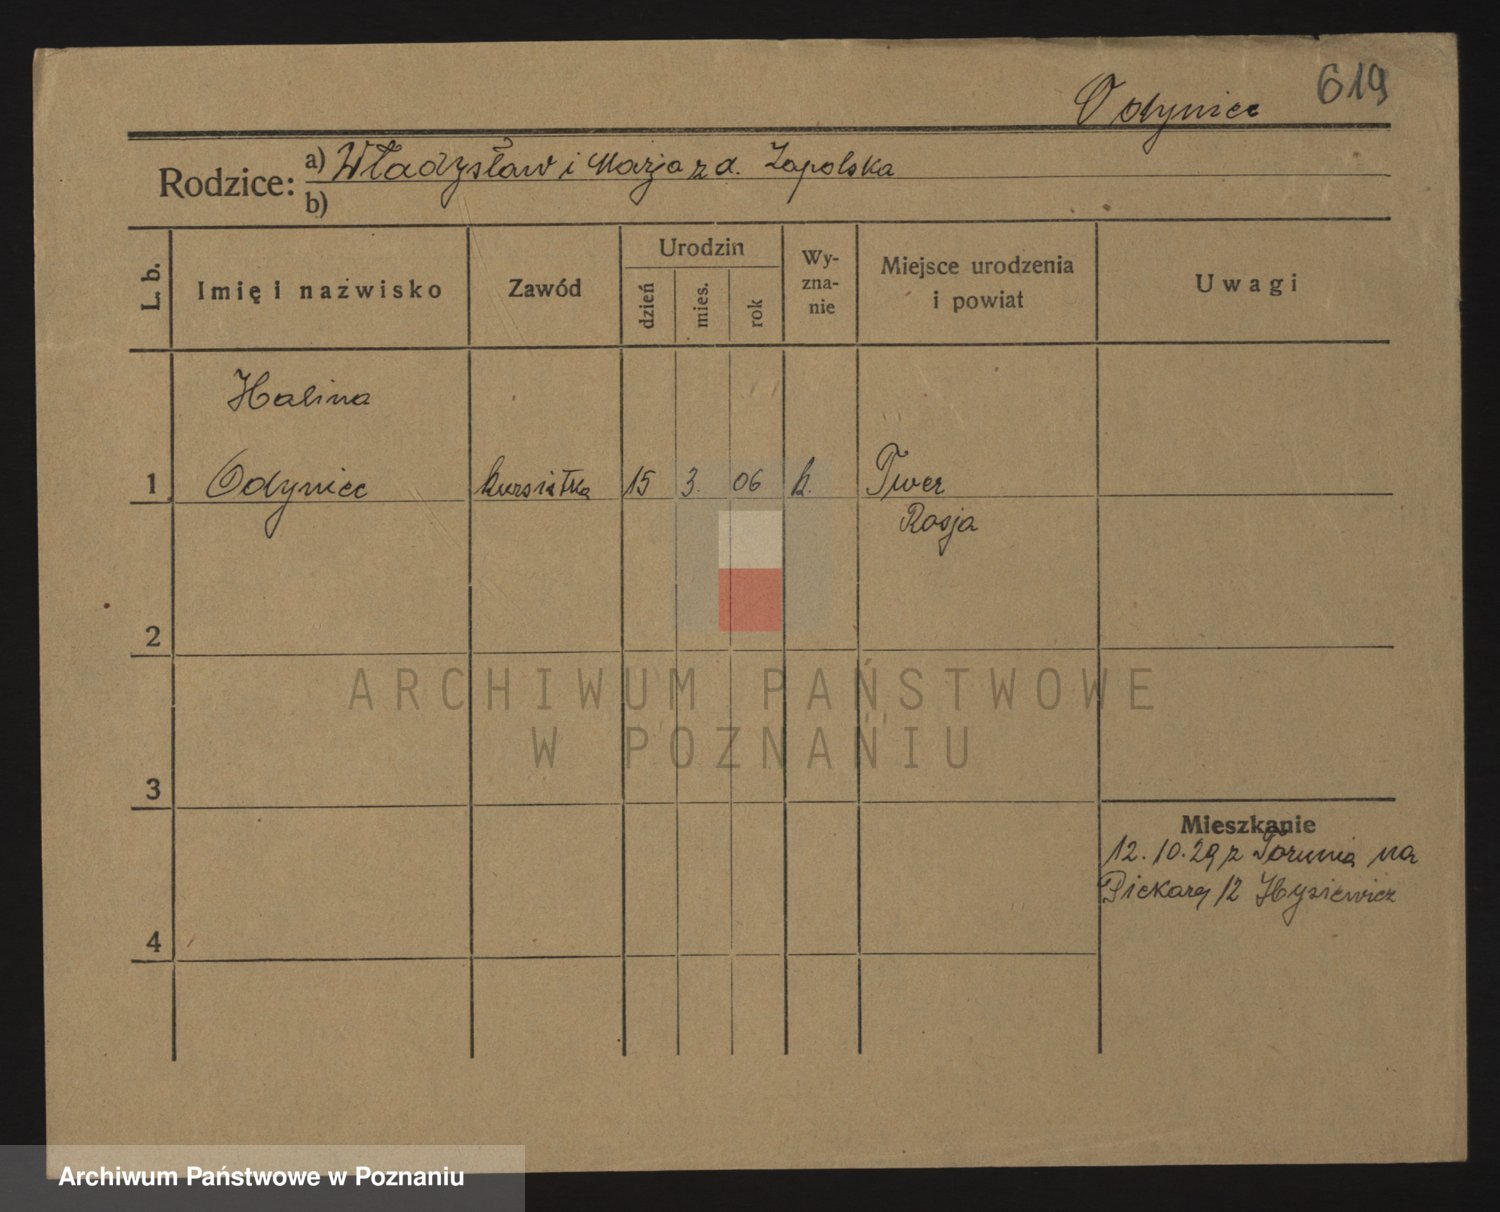 619
Odyniec
Rodzice: a) Władysław i Marja z d. Zapolska
b)
L. b.
Imię i nazwisko
Zawód
Urodzin
dzień
mies.
rok
Wy-
zna-
nie
Miejsce urodzenia
i powiat
Uwagi
Halina
1 Odyniec kursistka 15 3. 06 k. Twer
Rosja
2
ARCHIWUM PAŃSTWOWE
W POZNANIU
3
Mieszkanie
12.10.29 z Torunia na
Piekary 12 Hyziewicz
4
Archiwum Państwowe w Poznaniu